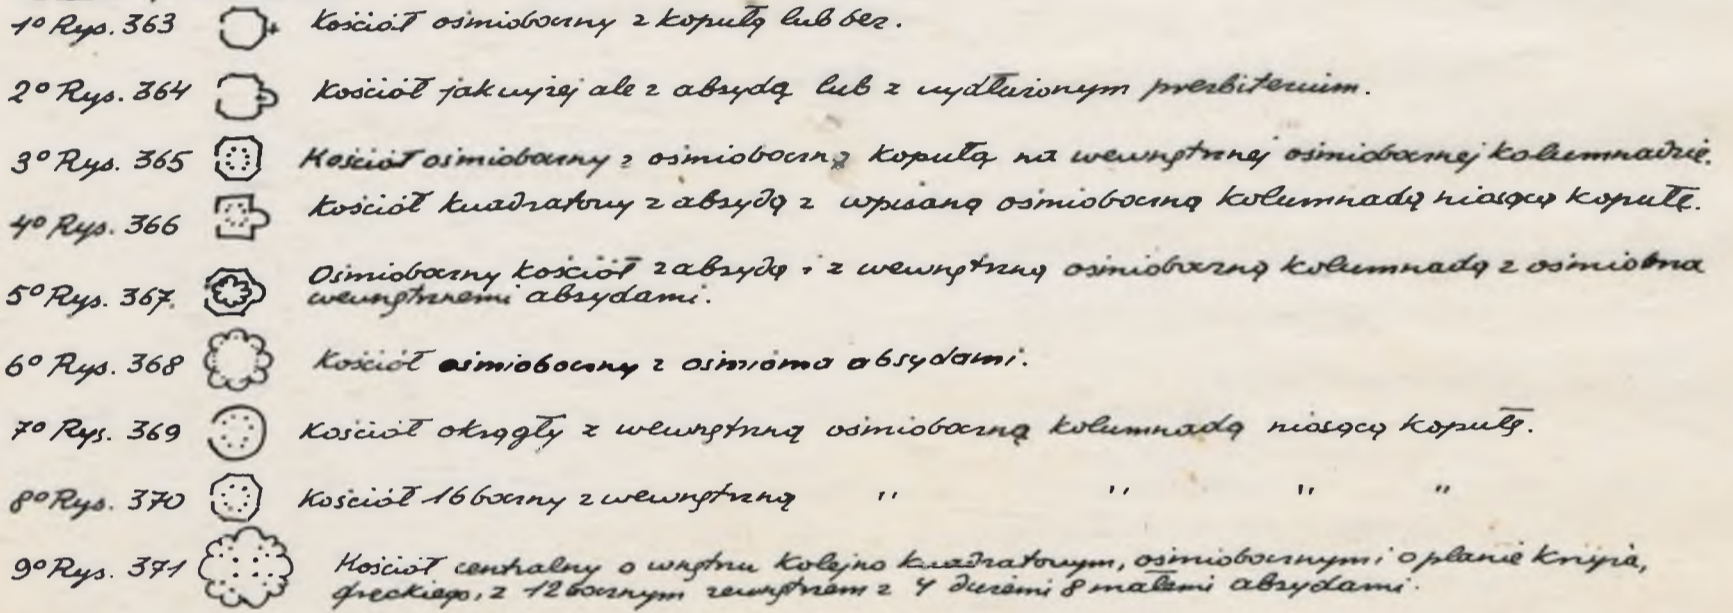 1º Rys. 363 Kościół ośmioboczny z kopułą lub bez.
2º Rys. 364 Kościół jak wyżej ale z absydą lub z wydłużonym prezbiterium.
3º Rys. 365 Kościół ośmioboczny z ośmioboczną kopułą na wewnętrznej ośmiobocznej kolumnadzie.
4º Rys. 366 Kościół kwadratowy z absydą z wpisaną ośmioboczną kolumnadą niosącą kopułę.
5º Rys. 367. Ośmioboczny kościół z absydą i z wewnętrzną ośmioboczną kolumnadą z ośmioma
wewnętrznemi absydami.
6º Rys. 368 Kościół ośmioboczny z ośmioma absydami.
7º Rys. 369 Kościół okrągły z wewnętrzną ośmioboczną kolumnadą niosącą kopułę.
8º Rys. 370 Kościół 16boczny z wewnętrzną " " " "
9º Rys. 371 Kościół centralny o wnętrzu kolejno kwadratowym, ośmiobocznym i o planie krzyża,
greckiego, z 12bocznym zewnętrzem z 4 dużemi 8 małemi absydami.